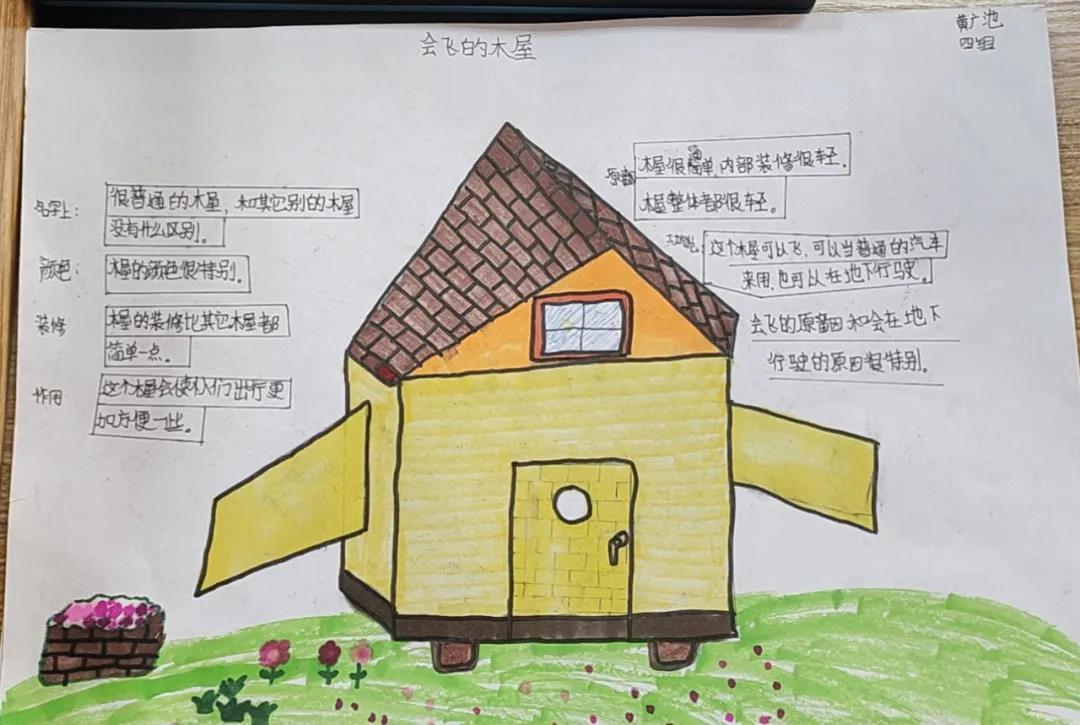 会飞的木屋
黄广池
四组
名字上：
很普通的木屋，和其它别的木屋
没有什么区别。
颜色：
木屋的颜色很特别。
装修
木屋的装修比其它木屋都
简单一点。
作用
这个木屋会使人们出行更
加方便一些。
木屋很简单，内部装修很轻。
木屋整体都很轻。
功能：
这个木屋可以飞，可以当普通的汽车
来用，也可以在地下行驶。
会飞的原因和会在地下
行驶的原因很特别。